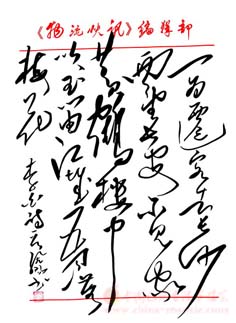 《物流快訊》編輯部
一为遷客去长沙
西望长安不见家
黄鹤楼中
吹玉笛江城五月落
梅花
李白诗